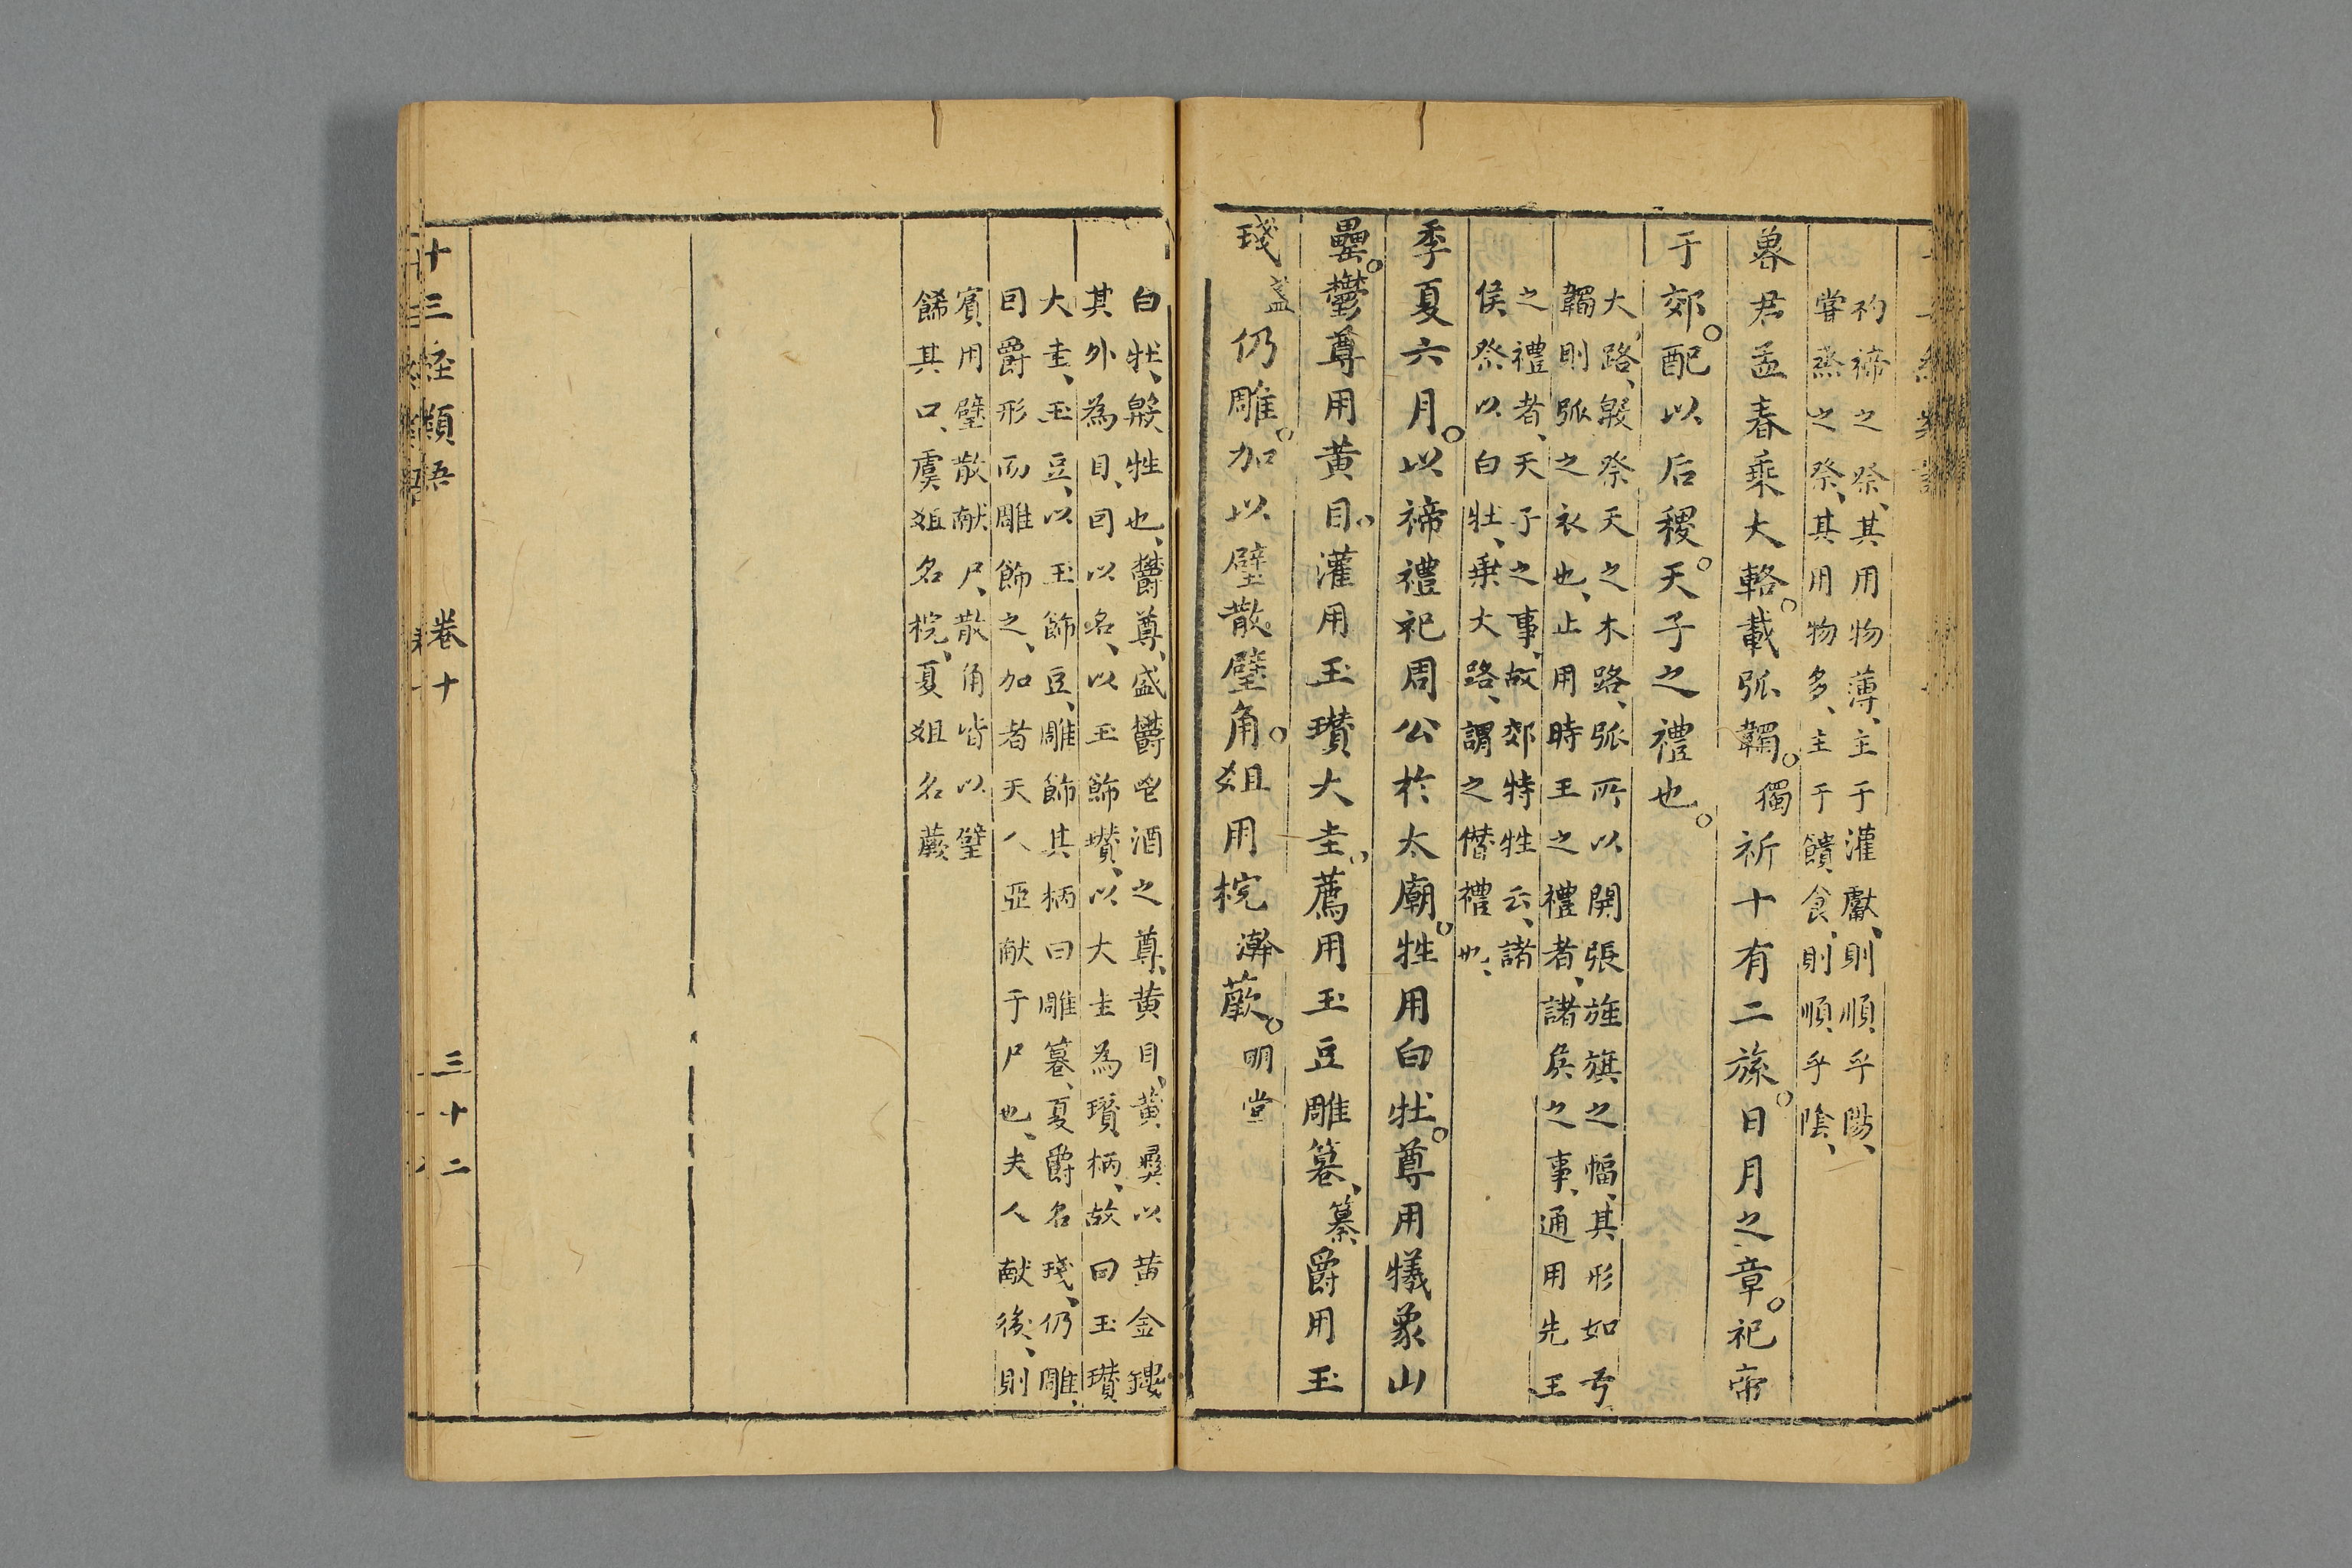 礿禘之祭、其用物薄、主于灌獻、則順乎陽、
嘗蒸之祭、其用物多、主于饋食、則順乎陰、
魯君孟春乘大輅。載弧韣。獨祈十有二旒。日月之章。祀帝
于郊。配以后稷。天子之禮也。
大路、殷祭天之木路、弧所以開張旌旗之幅、其形如弓、
韣則弧之衣也、止用時王之禮者、諸侯之事、通用先王
之禮者、天子之事、故郊特牲云、諸
侯祭以白牡、乗大路、謂之僣禮也、
季夏六月。以禘禮祀周公於太廟。牲用白牡。尊用犧象山
罍。鬱尊用黄目。灌用玉瓚大圭。薦用玉豆雕篹、纂爵用玉
琖盞仍雕。加以璧散璧角。爼用梡瀚蕨。明堂
白牡、殷牲也、鬱尊、盛鬱鬯酒之尊、黄目、黄彛以黄金鏤
其外為目、囙以名、以玉飾瓚、以大圭為瓚柄、故曰玉瓚
大圭、玉豆、以玉飾豆、雕飾其柄曰雕篹、夏爵名琖、仍雕、
囙爵形而雕飾之、加者天人亞献于尸也、夫人献後、則
賓用璧散献尸、散角皆以璧
餙其口、虞爼名梡、夏爼名蕨
十三経類語 卷十 三十二